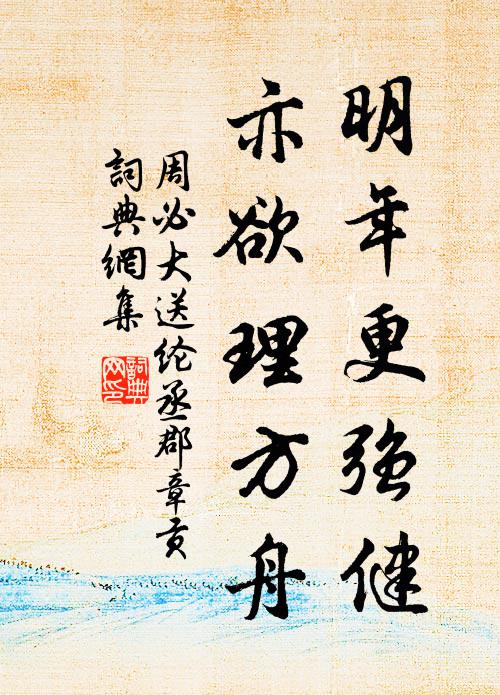 明年更強健
亦欲理方舟
周必大送纶丞郡章贡
詞典網集
詞典網印